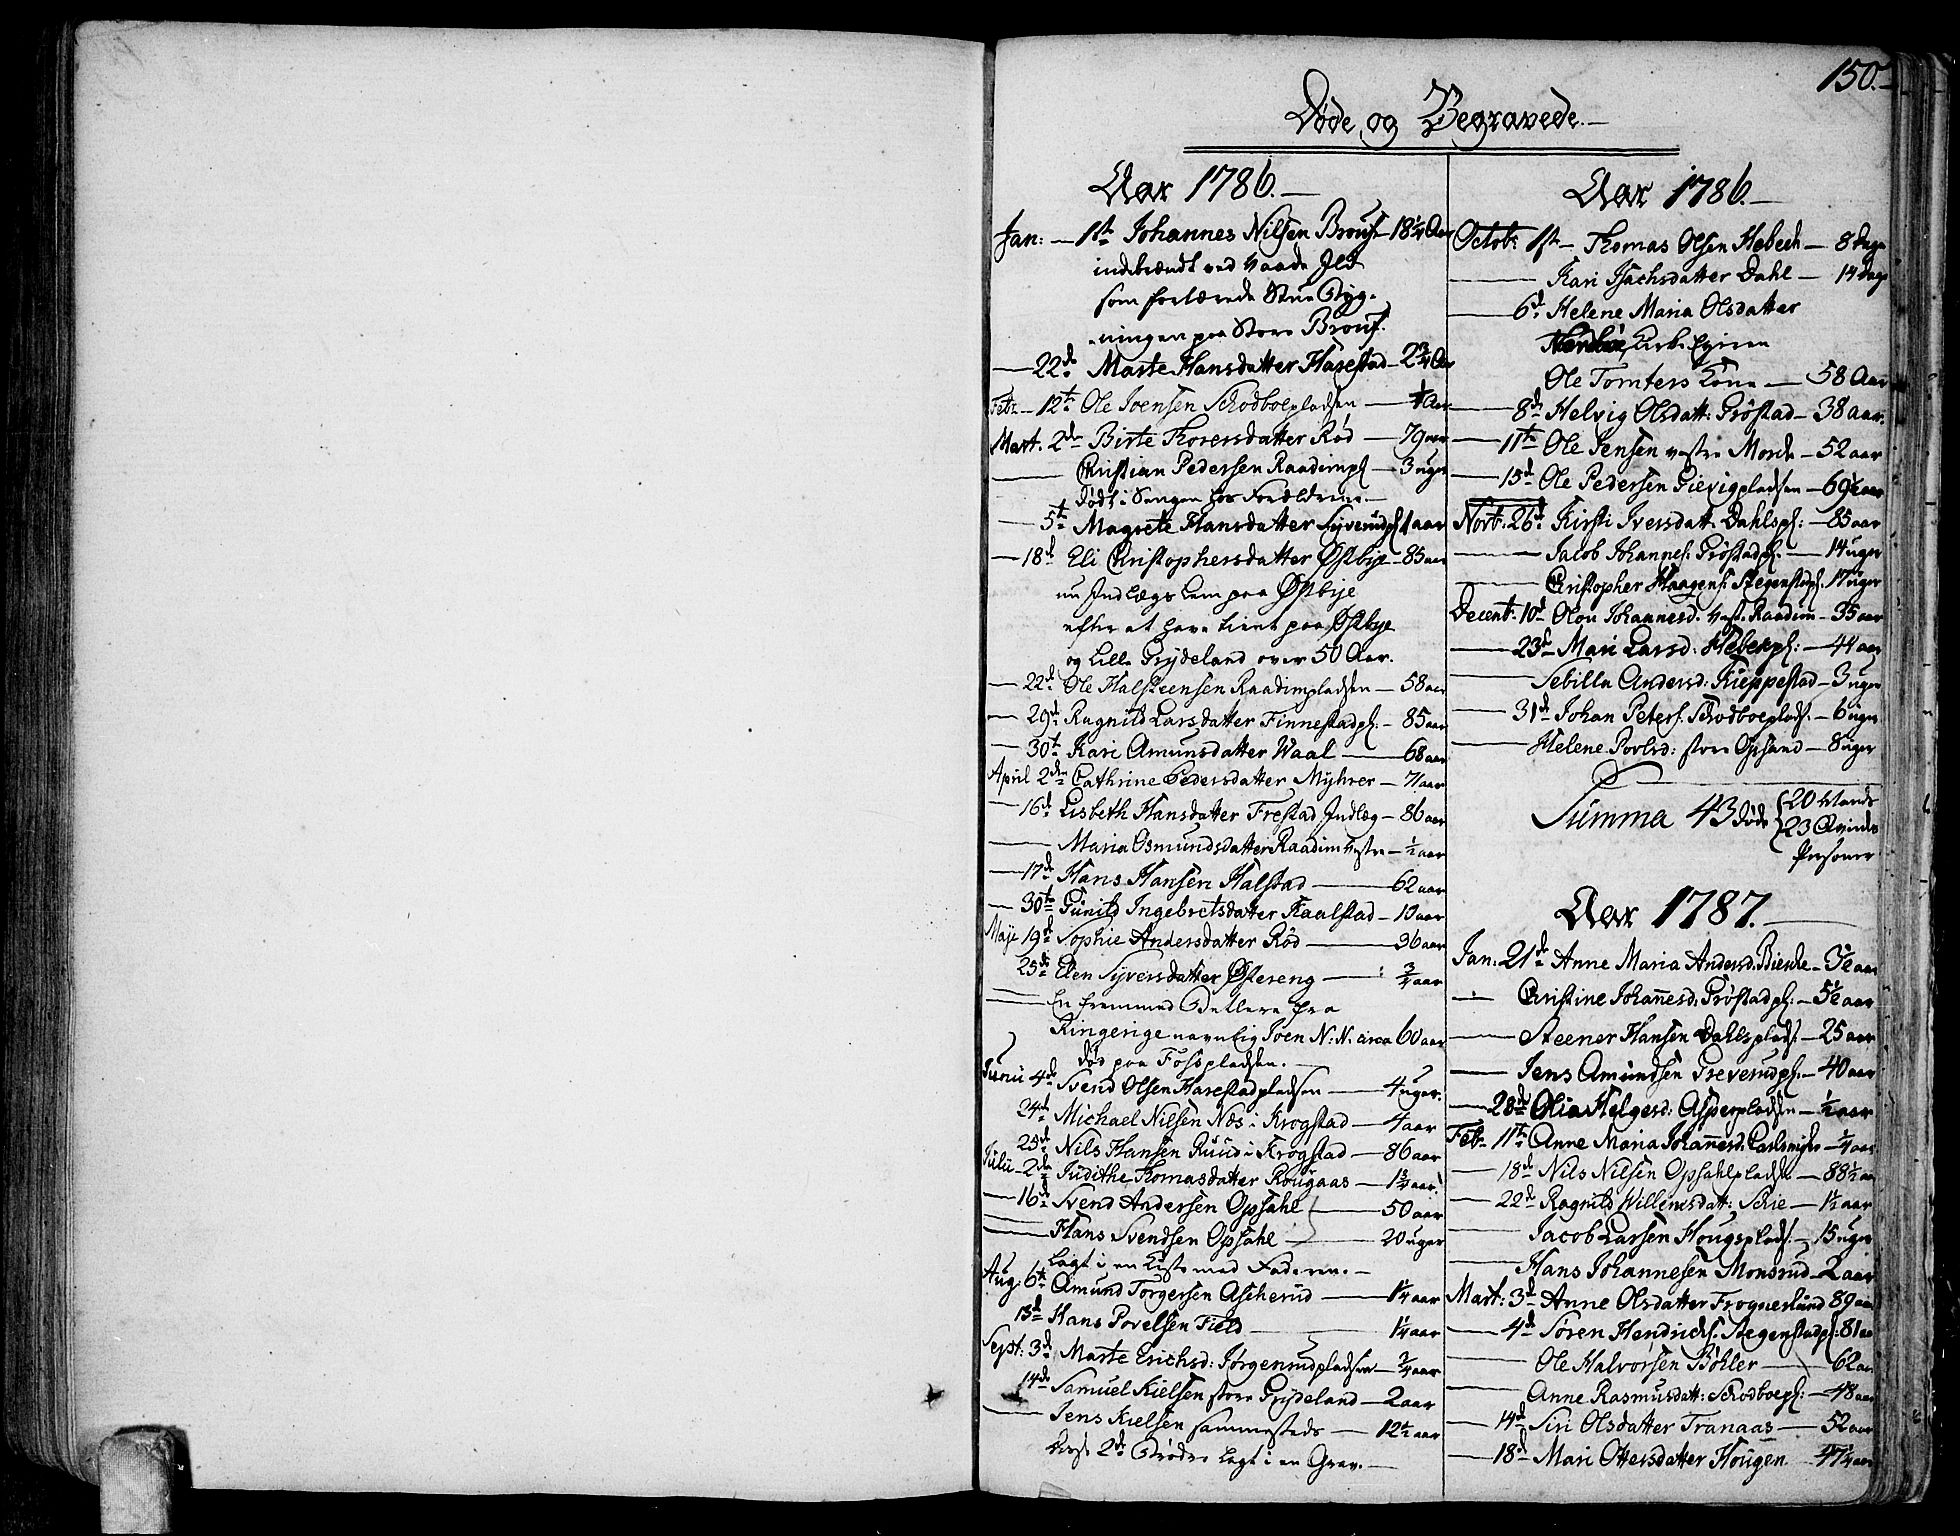 150.
Døde, og Begravede.
Aar 1786.
Jan: 1te Johannes Nilsen Brous 18 1/4 Aar
indebrændt ved Vaade Jld
som fortærede Stue Byg-
ningen paa Store Brous.
22de Marte Hansdatter Harestad 2 3/4 Aar
Febr. 12te Ole Joensen Schodboepladsen Aar
Mart. 2den Birte Thoresdatter Rød 79 aar
Christian Pedersen Raadimpl 3 uger
Dødt i Sengen hos Forældrene.
5te Magrete Hansdatter Syverudpl 1 aar
18de Eli Christophersdatter Østbye 85 aar
nu Jndlægs Lem paa Østbye
efter at have tient paa Østbye
og Lille Frydeland over 50 Aar.
22de Ole Halsteensen Raadimpladsen 58 aar
29de Ragnild Larsdatter Finnestadpl. 85 aar
30te Kari Amunsdatter Waal 68 aar
April 2den Cathrine Pedersdatter Myhrer 71 aar
16de Lisbeth Hansdatter Frestad Jndlæg 86 aar
Maria Osmundsdatter Raadim vestre 1/2 aar
17de Hans Hansen Halstad 62 aar
30te Gunild Ingebretsdatter Kaalstad 13 aar
Maje 19de Sophie Andersdatter Rød 36 aar
25de Elen Syversdatter Østereng 3/4 aar
En fremmed Betlere fra
Ringerige navnlig Joen N: N. circa 60 aar
død paa Fosspladsen.
Junii 4de Svend Olsen Harestadpladsen 4 uger.
24de Michael Nilsen Næs i Krogstad 4 aar
25de Nils Hansen Ruud i Krogstad 86 aar
Julii 2den Judithe Thomasdatter Rougaas 1 3/4 aar
16de Svend Andersen Opsahl 50 aar
Hans Svendsen Opsahl 20 uger
Lagt i en Kiste med Faderen.
Aug: 6te Amund Torgersen Ascherud 1 1/4 aar
13de Hans Povelsen Field 1 1/4 aar
Sept: 3de Marte Erichsd: Jørgensrudpladsen 3/4 aar
14de Samuel Kielsen store Frydeland 2 aar
Jens Kielsen sammesteds 12 1/2 aar
Disse 2de Brødre lagt i en Grav.
Aar 1786.
Octob: 1ste Thomas Olsen Hebech 8 dage
Kari Jsachsdatter Dahl 14 dage
6te Helene Maria Olsdatter
Kirke Eyeren
Ole Tomters Kone 58 Aar
8de Helvig Olsdatt: Prøstad 38 aar.
11te Ole Jensen vestre Morde 52 aar
15de Ole Pedersen Gievigpladsen 69 1/2 aar
Novb: 26de Kirsti Iversdatt. Dahlspl: 85 aar
Jacob Johannes: Prøstadpl. 14 uger
Christopher Haagens: Stegenstadpl. 17 uger
Decemb: 10de Olou Johannesd: vest. Raadim 35 aar
23de Mari Larsd: Hebekpl: 44 aar
Sebilla Andersd: Kieppestad 3 uger
31de Johan Peters. Schodboeplads. 6 uger
Helene Povlsd: store Opsand 8 uger
Summa 43 døde {20 Mands
23 Qvinds
Personer
Aar 1787.
Jan: 21de Anne Maria Andersd. Biercke 3 1/2 aar
Christine Johannesd: Prøstadpl: 5 1/2 aar
Steener Hansen Dahlsplads. 25 aar
Jens Amundsen Greverudpl. 40 aar
28de Olia Helgesd: Asperpladsen 1/2 aar
Feb. 11te Anne Maria Johannesd: 1/4 aar
18de Nils Nilsen Opsahlplads. 88 1/2 aar
22de Ragnild Willemsdatt: Schie 1 1/2 aar
Jacob Larsen Hougsplads. 15 uger
Hans Johannesen Monsrud 2 aar
Mart: 3de Anne Olsdatter Frognerlund 89 aar
4de Søren Hendrichs. Stegenstadpl: 81 aa
Ole Halvorsen Bøhler 62 aa
Anne Rasmusdatt: Schodboepl: 48 aar
14de Siri Olsdatter Tranaas 52 aar
18de Mari Ottersdatter Hougen 47 1/2 aar